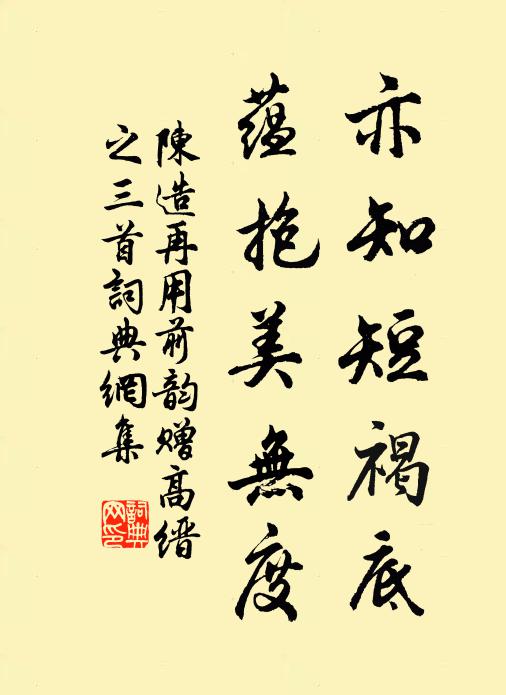 亦知短褐底
蕴抱美無度
陳造再用前韵赠高缙
之三首詞典網集
詞典
网印